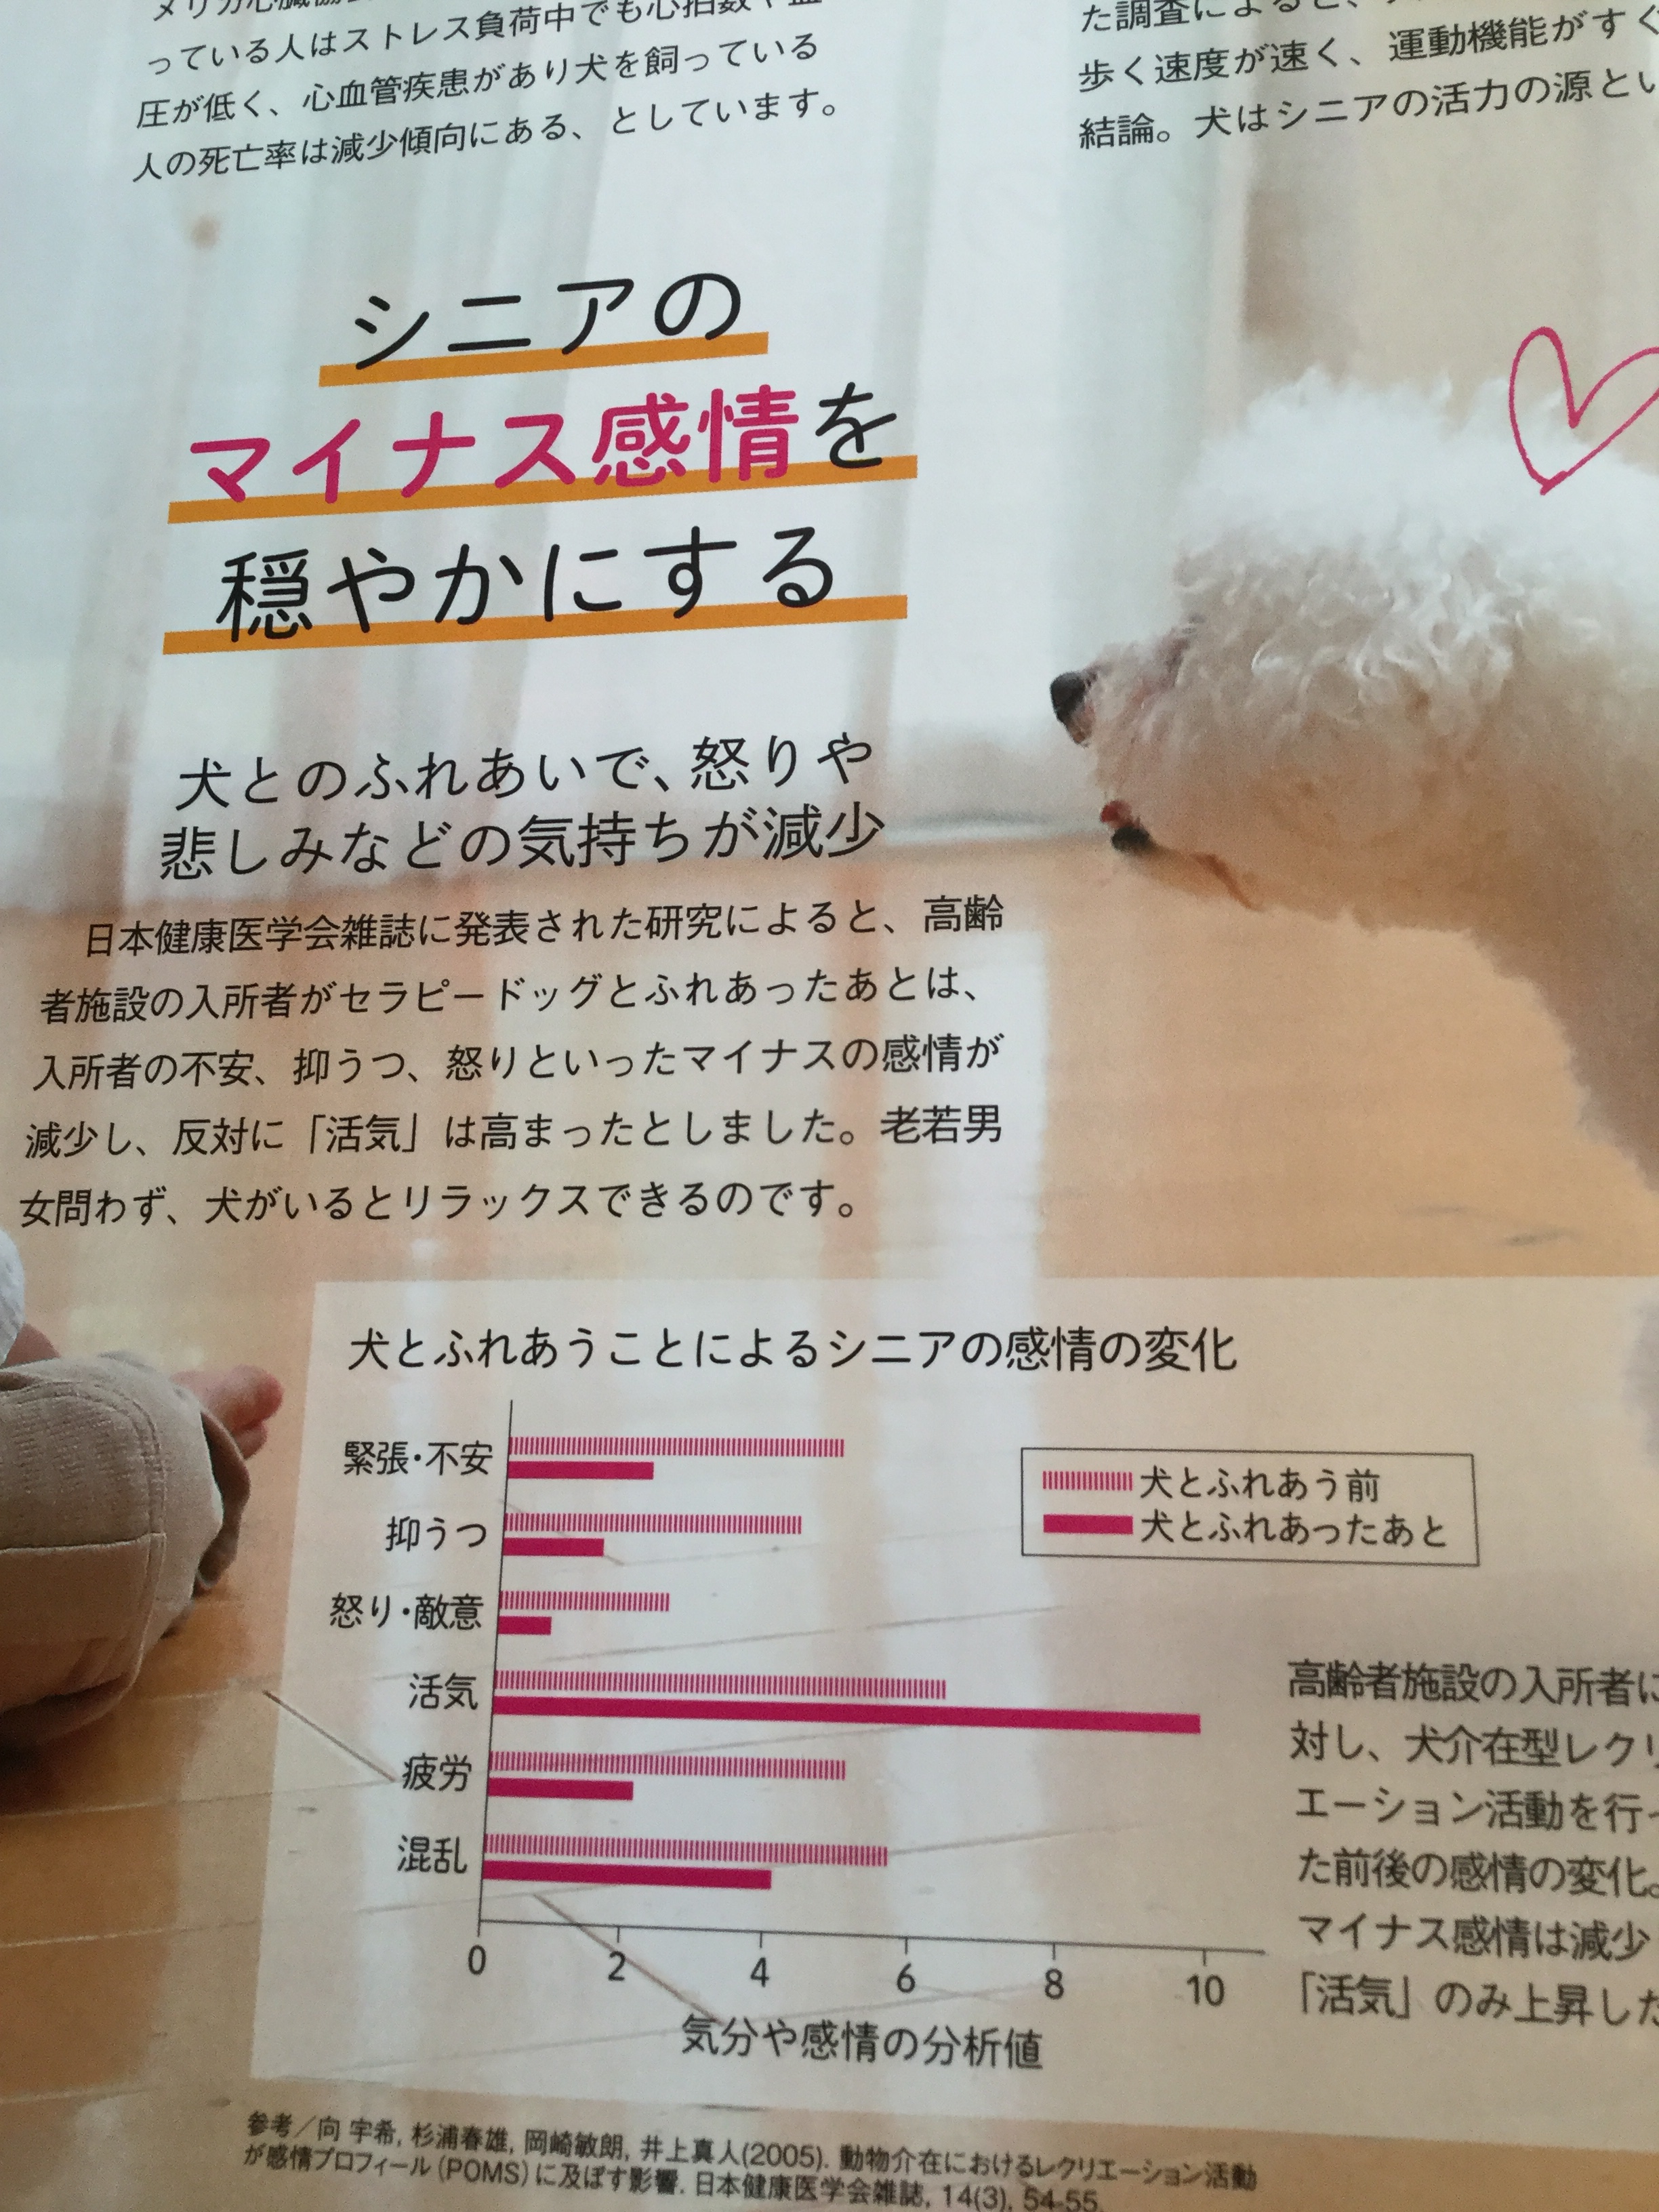 っている人はストレス負荷中でも心拍数や血
圧が低く、心血管疾患があり犬を飼っている
人の死亡率は減少傾向にある、としています。
た調査によると、
歩く速度が速く、運動機能がすぐ
結論。犬はシニアの活力の源とい
シニアの
マイナス感情を
穏やかにする
犬とのふれあいで、怒りや
悲しみなどの気持ちが減少
日本健康医学会雑誌に発表された研究によると、高齢
者施設の入所者がセラピードッグとふれあったあとは、
入所者の不安、抑うつ、怒りといったマイナスの感情が
減少し、反対に「活気」は高まったとしました。老若男
女問わず、犬がいるとリラックスできるのです。
犬とふれあうことによるシニアの感情の変化
緊張・不安
抑うつ
怒り・敵意
活気
疲労
混乱
犬とふれあう前
犬とふれあったあと
0 2 4 6 8 10
気分や感情の分析値
高齢者施設の入所者に
対し、犬介在型レクリ
エーション活動を行っ
た前後の感情の変化。
マイナス感情は減少
「活気」のみ上昇した
参考／向 宇希, 杉浦春雄, 岡崎敏朗, 井上真人(2005). 動物介在におけるレクリエーション活動
が感情プロフィール(POMS)に及ぼす影響. 日本健康医学会雑誌, 14(3), 54-55.